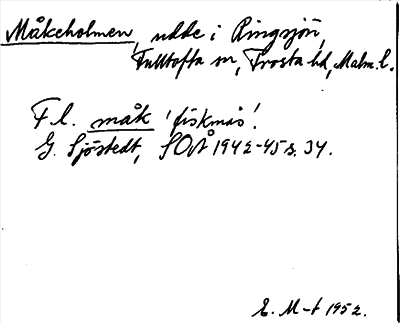 Måkeholmen, udde i Ringsjön,
Fulltofta sn, Frosta hd, Malm. l.
F. l. måk 'fiskmås'.
G. Sjöstedt, SOÅ 1942-45 s. 34.
E. M-t 1952.